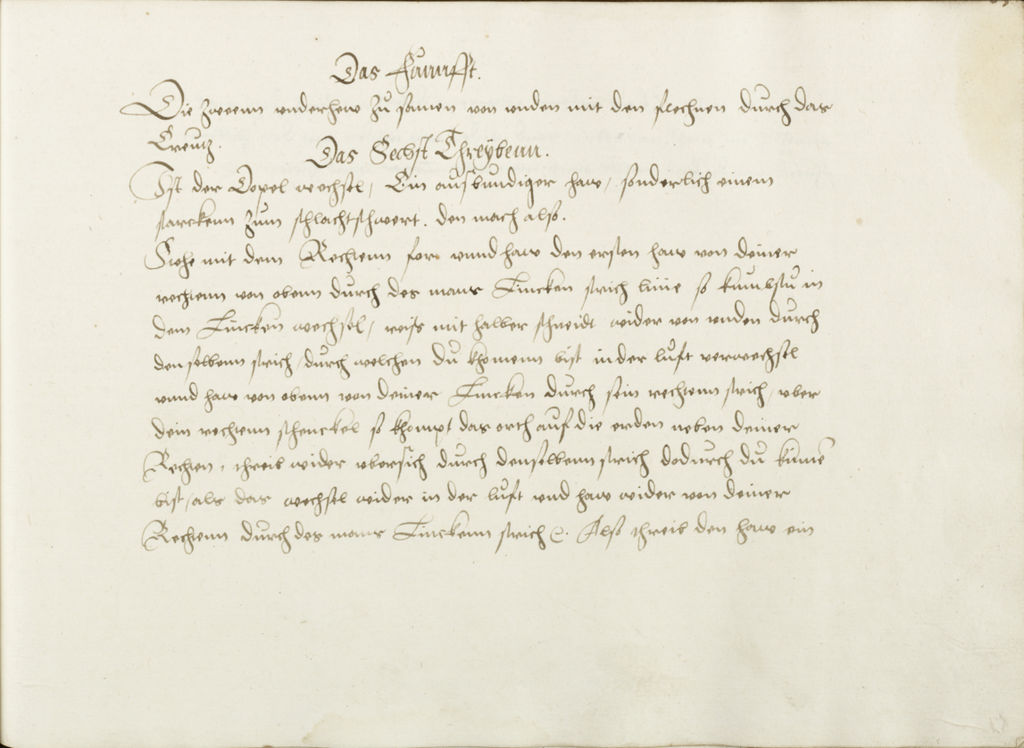 Das Funnfft.
Die zween underhew zu samen von unden mit den flechnen durch das
Creutz.
Das Sechst Threybenn.
Ist der Dopel wechsel, Ein ausbundiger haw, sonderlich einem
starckenn zum schlachtschwert. den mach also.
Stehe mit dem Rechtenn for, unnd haw den ersten haw von deiner
rechtenn von obenn durch des mans Lincken strich linie so kumbstu in
dem Lincken wechsel, reiss mit halber schneidt wider von unden durch
denselbenn strich, durch welchen du khomenn bist in der luft verwechsel
unnd haw von obenn von deiner Lincken durch sein rechtenn strich, uber
dein rechtenn schenckel so khompt das orth auf die erden neben deiner
Rechten, threib wider ubersich durch denselbenn strich dodurch du kumē
bist, als das wechsel wider in der luft und haw wider von deiner
Rechtenn durch des mans Linckenn strich &. Also threib den haw ein